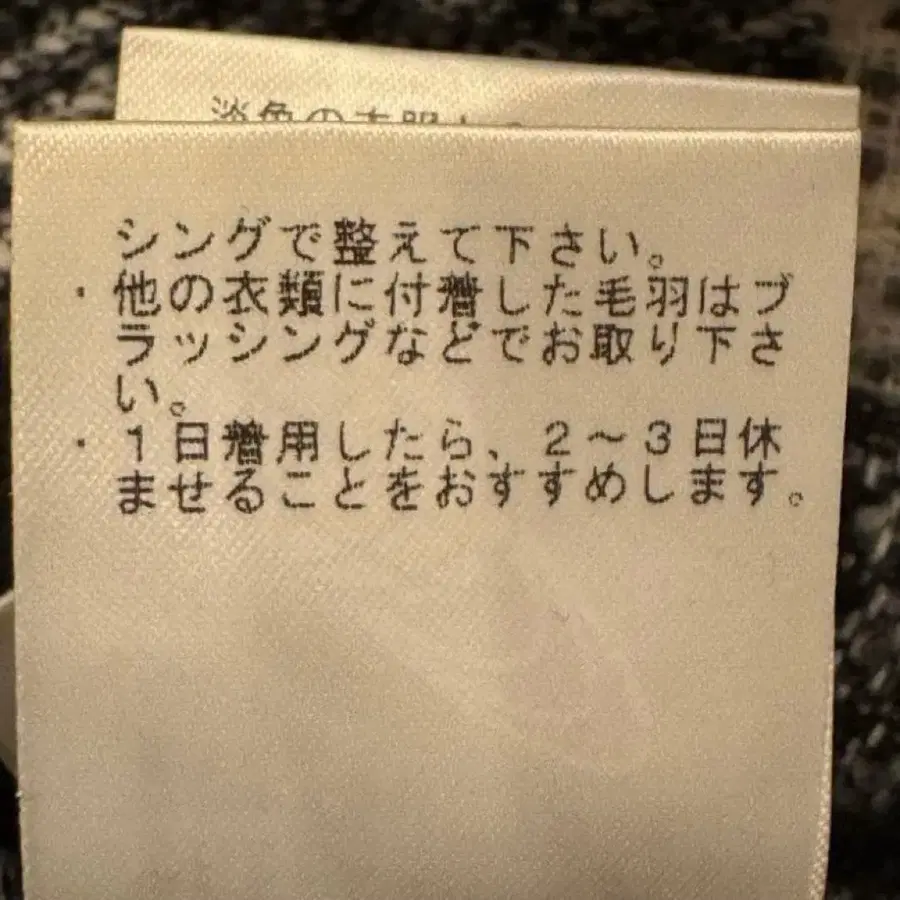 淡色の衣服と
シングで整えて下さい。
・他の衣類に付着した毛羽はブ
ラッシングなどでお取り下さ
い。
・1日着用したら、2～3日休
ませることをおすすめします。